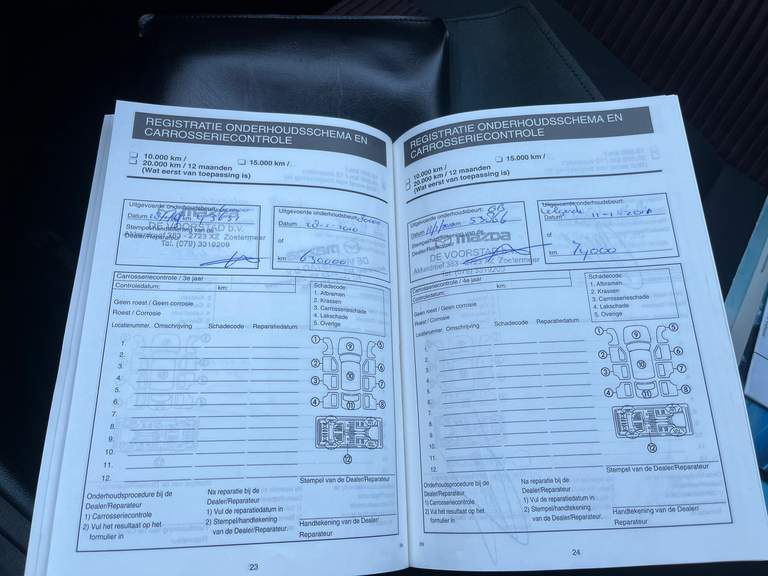 REGISTRATIE ONDERHOUDSSCHEMA EN
CARROSSERIECONTROLE
10.000 km /
20.000 km / 12 maanden
(Wat eerst van toepassing is)
15.000 km /
Uitgevoerde onderhoudsbeurt:
Datum
DE VOORSTAD B.V.
Stempel/handtekening van de
Dealer/Reparateur
Akkerdreef 383 - 2723 XZ Zoetermeer
Tel. (079) 3319209
Uitgevoerde onderhoudsbeurt:
Datum
of
km
Carrosseriecontrole / 3e jaar
Controledatum:
km:
Geen roest / Geen corrosie
Roest / Corrosie
Schadecode:
1. Afbramen
2. Krassen
3. Carrosserieschade
4. Lakschade
5. Overige
Locatienummer. Omschrijving Schadecode Reparatiedatum
1.
2.
3.
4.
5.
6.
7.
8.
9.
10.
11.
12.
1
2
3
4
5
6
7
8
9
10
11
12
Onderhoudsprocedure bij de
Dealer/Reparateur
1) Carrosseriecontrole
2) Vul het resultaat op het
formulier in
Na reparatie bij de
Dealer/Reparateur
1) Vul de reparatiedatum in
2) Stempel/handtekening
van de Dealer/Reparateur.
Stempel van de Dealer/Reparateur
Handtekening van de Dealer/
Reparateur
23
REGISTRATIE ONDERHOUDSSCHEMA EN
CARROSSERIECONTROLE
10.000 km /
20.000 km / 12 maanden
(Wat eerst van toepassing is)
15.000 km /
Uitgevoerde onderhoudsbeurt:
Datum
Stempel/handtekening
Dealer/Reparateur
mazda
DE VOORSTAD
Akkerdreef 383 Zoetermeer
Uitgevoerde onderhoudsbeurt:
Datum
of
km 74000
Carrosseriecontrole / 4e jaar
Controledatum:
km:
Geen roest / Geen corrosie
Roest / Corrosie
Schadecode:
1. Afbramen
2. Krassen
3. Carrosserieschade
4. Lakschade
5. Overige
Locatienummer. Omschrijving Schadecode Reparatiedatum
1.
2.
3.
4.
5.
6.
7.
8.
9.
10.
11.
12.
1
2
3
4
5
6
7
8
9
10
11
12
Onderhoudsprocedure bij de
Dealer/Reparateur
1) Carrosseriecontrole
2) Vul het resultaat op het
formulier in
Na reparatie bij de
Dealer/Reparateur
1) Vul de reparatiedatum in
2) Stempel/handtekening
van de Dealer/Reparateur.
Stempel van de Dealer/Reparateur
Handtekening van de Dealer/
Reparateur
24